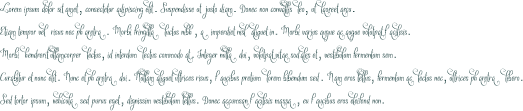 Lorem ipsum dolor sit amet, consectetur adipiscing elit. Suspendisse et justo diam. Donec non convallis leo, at laoreet arcu.
Etiam tempor vel risus nec pharetra. Morbi fringilla luctus nibh, a imperdiet nisl aliquet in. Morbi varius augue ac augue volutpat facilisis.
Morbi hendrerit ullamcorper lectus, id interdum lectus commodo at. Integer mollis dui, volutpat vitae sodales et, vestibulum fermentum sem.
Curabitur et nunc elit. Nunc ac pharetra dui. Nullam aliquet ultrices risus, faucibus pretium lorem bibendum sed. Nam eros tellus, fermentum ac lectus nec, ultrices pharetra libero.
Sed dolor ipsum, vehicula sed purus eget, dignissim vestibulum tellus. Donec accumsan facilisis massa, eu faucibus eros eleifend non.